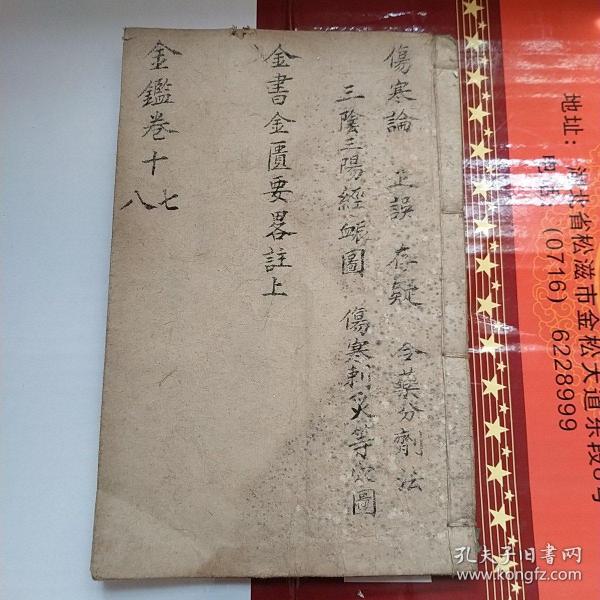 傷寒論 正誤 存疑 合藥分劑法
三陰三陽經脈圖 傷寒刺灸等穴圖
金書金匱要畧註上
金鑑卷十七
八
地址: 湖北省松滋市金松大道东段8号
(0716) 6228999
孔夫子旧书网
www.kongfz.com